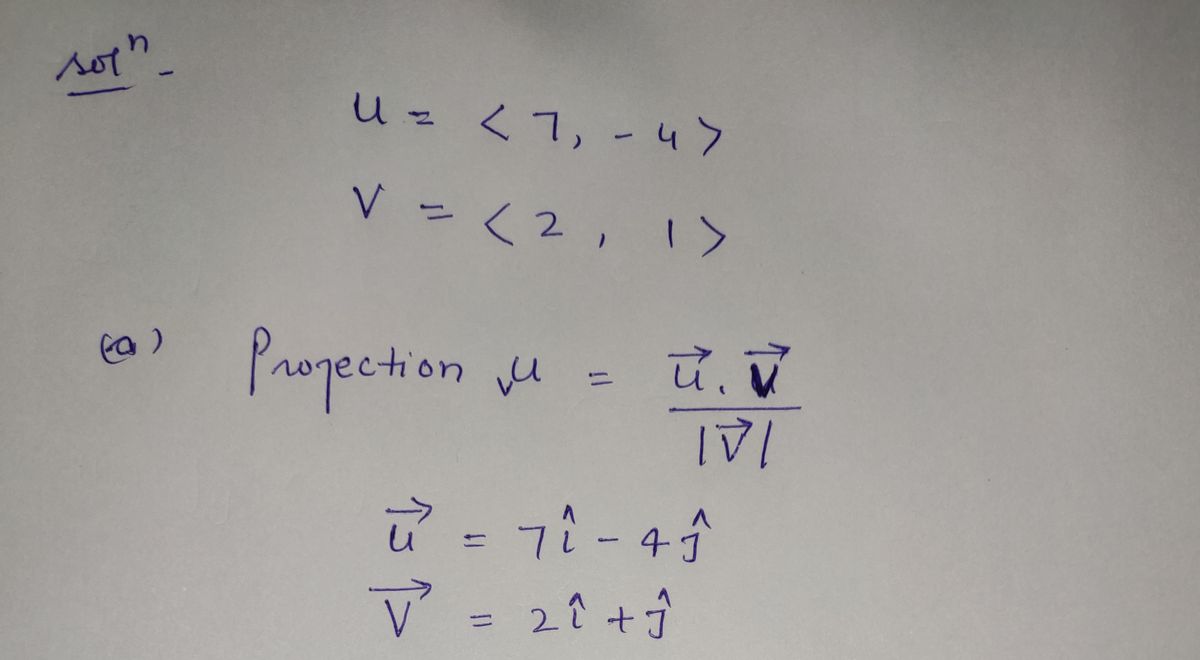 solⁿ-
u = < 7, - 4 >
v = < 2 , 1 >
(a) Projection ᵥu = u⃗ . v⃗ / |v⃗|
u⃗ = 7î - 4ĵ
v⃗ = 2î + ĵ